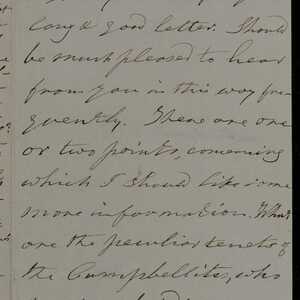 long & good letter. Should
be much pleased to hear
from you in this way fre-
quently. There are one
or two points, concerning
which I should like some
more information. What
are the peculiar tenets of
the Campbellites, who